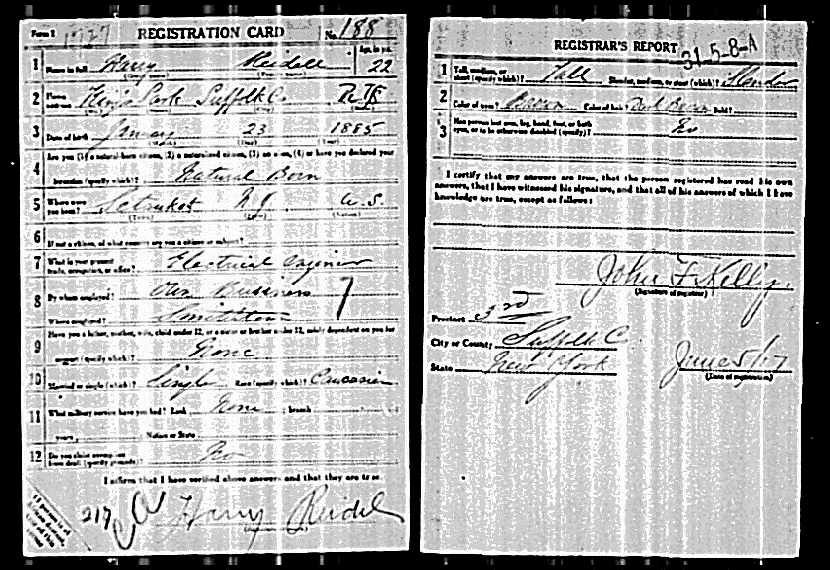 Form 1 1727 REGISTRATION CARD No. 188
1 Name in full Harry Reidell Age, in yrs. 22
2 Home address Kings Park Suffolk Co
3 Date of birth January 23 1885
Are you (1) a natural-born citizen, (2) a naturalized citizen, (3) an alien, (4) or have you declared your
4 intention (specify which)? Natural Born
5 Where were you born? Setauket N.Y. U.S.
6 If not a citizen, of what country are you a citizen or subject?
7 What is your present trade, occupation, or office? Electrical Engineer
8 By whom employed? Own Bussiness
Where employed? Smithtown
9 Have you a father, mother, wife, child under 12, or a sister or brother under 12, solely dependent on you for
support (specify which)? None
10 Married or single (which)? Single Race (specify which)? Caucasian
11 What military service have you had? Rank None branch
years Nation or State
12 Do you claim exemption from draft (specify grounds)? No
I affirm that I have verified above answers and that they are true.
217 Harry Reidel
REGISTRAR'S REPORT 31-5-8-A
1 Tall, medium, or short (specify which)? Tall Slender, medium, or stout (which)? Slender
2 Color of eyes? Brown Color of hair? Dark Brown Bald?
3 Has person lost arm, leg, hand, foot, or both eyes, or is he otherwise disabled (specify)? No
I certify that my answers are true, that the person registered has read his own
answers, that I have witnessed his signature, and that all of his answers of which I have
knowledge are true, except as follows:
John F Kelly.
(Signature of registrar)
Precinct 3rd
City or County Suffolk C
State New York
June 5/17
(Date of registration)